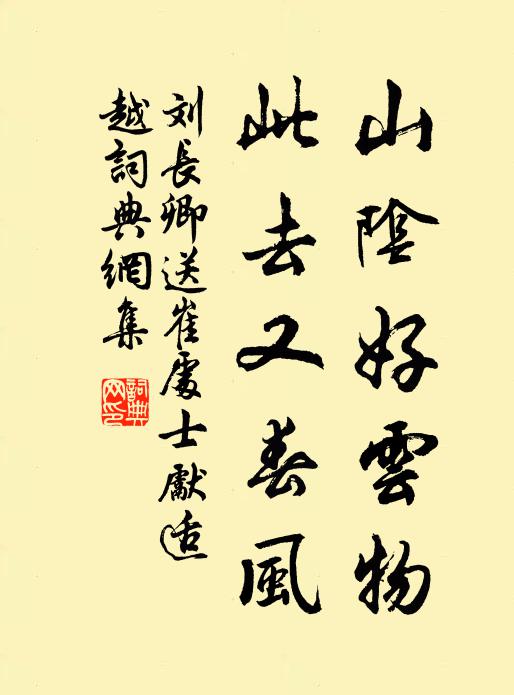 山陰好雲物
此去又春風
刘長卿送崔處士獻适
越詞典網集
詞典
网印